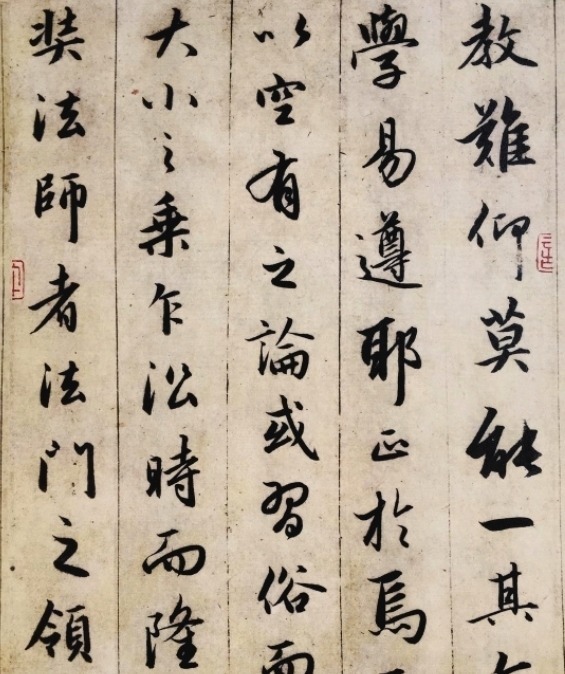 教難仰莫能一其
學易遵耶正於焉
以空有之論或習俗而
大小之乗乍㳂時而隆
奘法師者法門之領